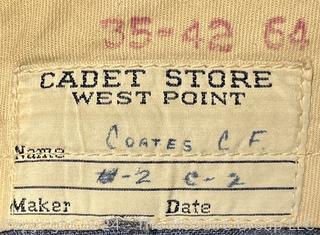 35-42 64
CADET STORE
WEST POINT
Name COATES C.F.
H-2 C-2
Maker Date